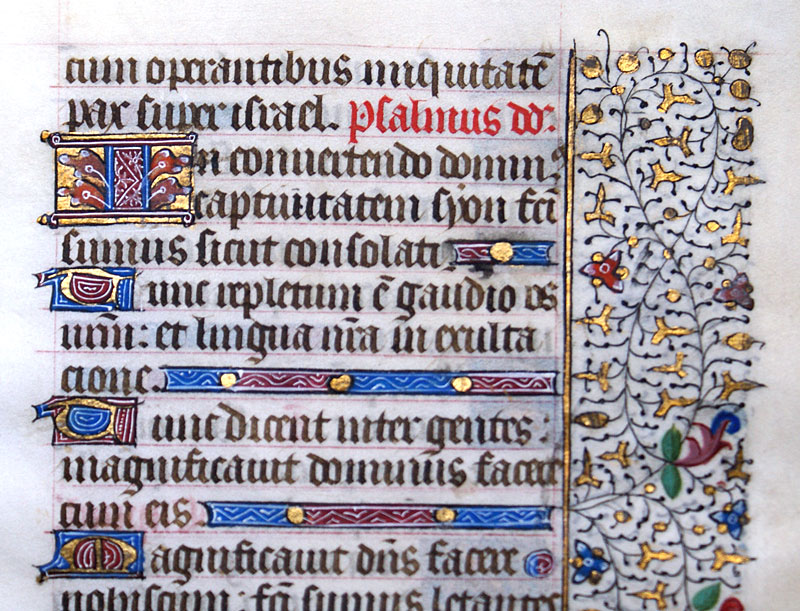 cum operantibus iniquitatē
pax super israel. Psalmus dd:
In conuertendo dominus
captiuitatem syon fcī
sumus sicut consolati
Tunc repletum ē gaudio os
nrm̄: et lingua nr̄a in exulta
cione.
Tunc dicent inter gentes:
magnificauit dominus facere
cum eis.
Magnificauit dn̄s facere
nobiscum: fcī sumus letantes